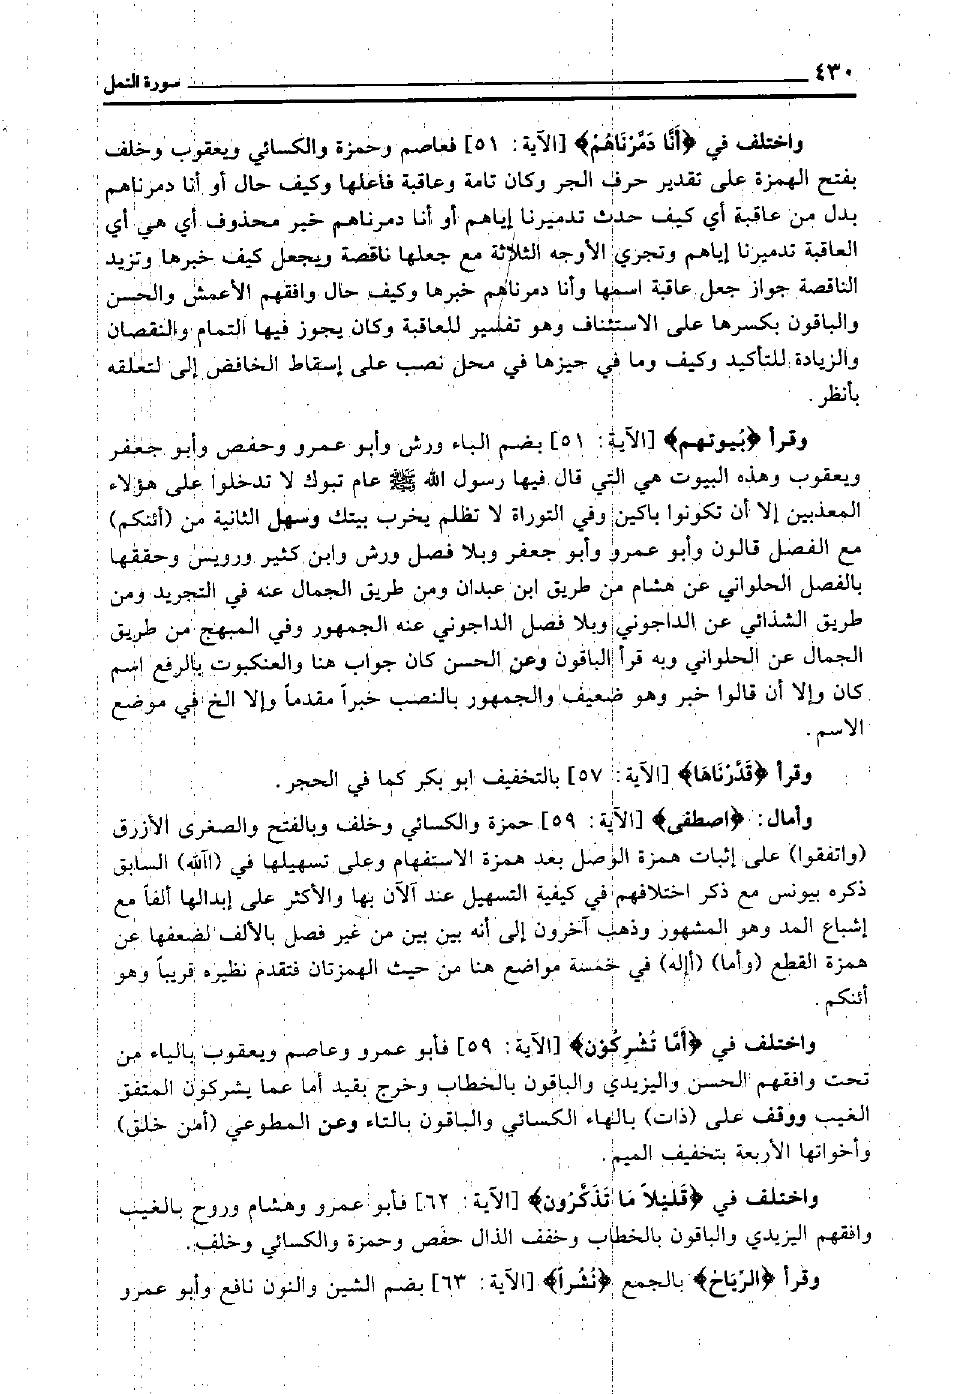 ٤٣٠
سورة النمل
واختلف في ﴿أَنَّا دَمَّرْنَاهُمْ﴾ [الآية: ٥١] فعاصم وحمزة والكسائي ويعقوب وخلف
بفتح الهمزة على تقدير حرف الجر وكان تامة وعاقبة فاعلها وكيف حال أو أنا دمرناهم
بدل من عاقبة أي كيف حدث تدميرنا إياهم أو أنا دمرناهم خبر محذوف أي هي أي
العاقبة تدميرنا إياهم وتجري الأوجه الثلاثة مع جعلها ناقصة ويجعل كيف خبرها وتزيد
الناقصة جواز جعل عاقبة اسمها وأنا دمرناهم خبرها وكيف حال وافقهم الأعمش والحسن
والباقون بكسرها على الاستئناف وهو تفسير للعاقبة وكان يجوز فيها التمام والنقصان
والزيادة للتأكيد وكيف وما في حيزها في محل نصب على إسقاط الخافض إلى لتعلقه
بأنظر.
وقرأ ﴿بُيوتهم﴾ [الآية: ٥١] بضم الباء ورش وأبو عمرو وحفص وأبو جعفر
ويعقوب وهذه البيوت هي التي قال فيها رسول الله ﷺ عام تبوك لا تدخلوا على هؤلاء
المعذبين إلا أن تكونوا باكين وفي التوراة لا تظلم يخرب بيتك وسهل الثانية من (أئنكم)
مع الفصل قالون وأبو عمرو وأبو جعفر وبلا فصل ورش وابن كثير ورويس وحققها
بالفصل الحلواني عن هشام من طريق ابن عبدان ومن طريق الجمال عنه في التجريد ومن
طريق الشذائي عن الداجوني وبلا فصل الداجوني عنه الجمهور وفي المبهج من طريق
الجمال عن الحلواني وبه قرأ الباقون وعن الحسن كان جواب هنا والعنكبوت بالرفع اسم
كان وإلا أن قالوا خبر وهو ضعيف والجمهور بالنصب خبراً مقدماً وإلا الخ في موضع
الاسم.
وقرأ ﴿قَدَّرْنَاهَا﴾ [الآية: ٥٧] بالتخفيف ابو بكر كما في الحجر.
وأمال: ﴿اصطفى﴾ [الآية: ٥٩] حمزة والكسائي وخلف وبالفتح والصغرى الأزرق
(واتفقوا) على إثبات همزة الوصل بعد همزة الاستفهام وعلى تسهيلها في (االله) السابق
ذكره بيونس مع ذكر اختلافهم في كيفية التسهيل عند آلآن بها والأكثر على إبدالها ألفاً مع
إشباع المد وهو المشهور وذهب آخرون إلى أنه بين بين من غير فصل بالألف لضعفها عن
همزة القطع (وأما) (أإله) في خمسة مواضع هنا من حيث الهمزتان فتقدم نظيره قريباً وهو
أئنكم.
واختلف في ﴿أَمَّا تُشرِكُوْن﴾ [الآية: ٥٩] فأبو عمرو وعاصم ويعقوب بالياء من
تحت وافقهم الحسن واليزيدي والباقون بالخطاب وخرج بقيد أما عما يشركون المتفق
الغيب ووقف على (ذات) بالهاء الكسائي والباقون بالتاء وعن المطوعي (أمن خلق)
وأخواتها الأربعة بتخفيف الميم.
واختلف في ﴿قَليْلاً مَا تَذَكَّرُون﴾ [الآية: ٦٢] فأبو عمرو وهشام وروح بالغيب
وافقهم اليزيدي والباقون بالخطاب وخفف الذال حفص وحمزة والكسائي وخلف.
وقرأ ﴿الرِّيَاحَ﴾ بالجمع ﴿نُشْراً﴾ [الآية: ٦٣] بضم الشين والنون نافع وأبو عمرو